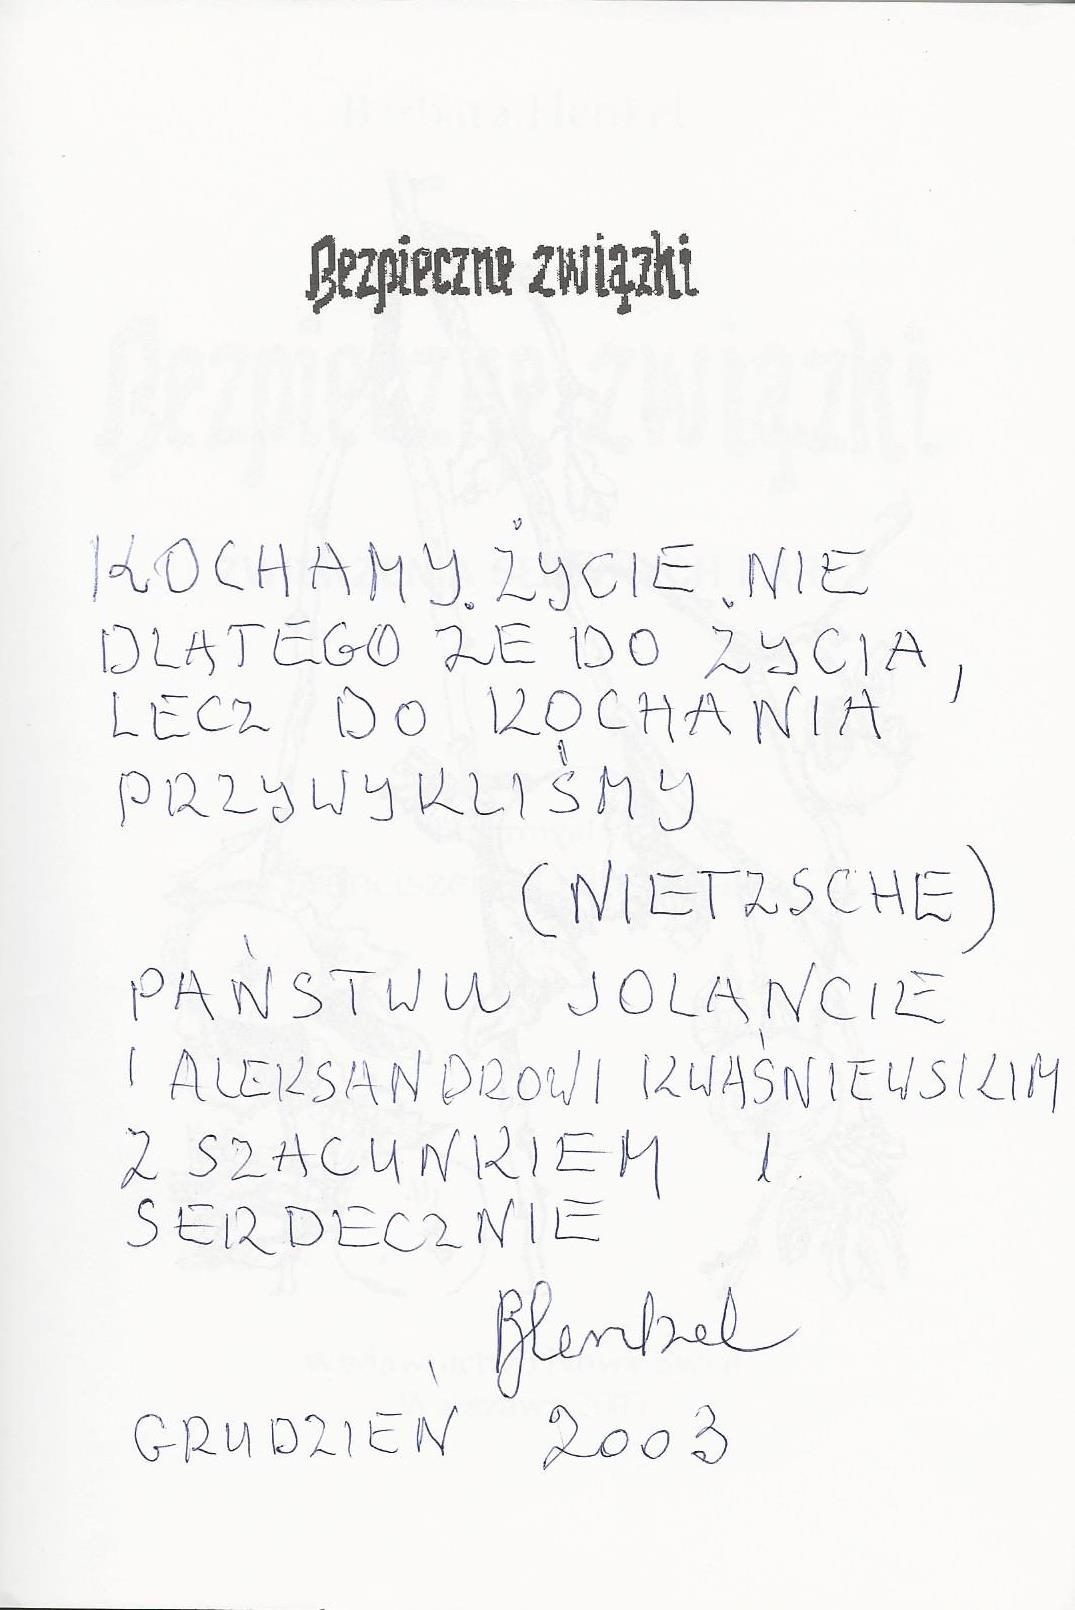 Bezpieczne związki
KOCHAMY ŻYCIE NIE
DLATEGO ŻE DO ŻYCIA,
LECZ DO KOCHANIA
PRZYWYKLIŚMY
(NIETZSCHE)
PAŃSTWU JOLANCIE
I ALEKSANDROWI KWAŚNIEWSKIM
Z SZACUNKIEM I
SERDECZNIE
BHenkel
GRUDZIEŃ 2003